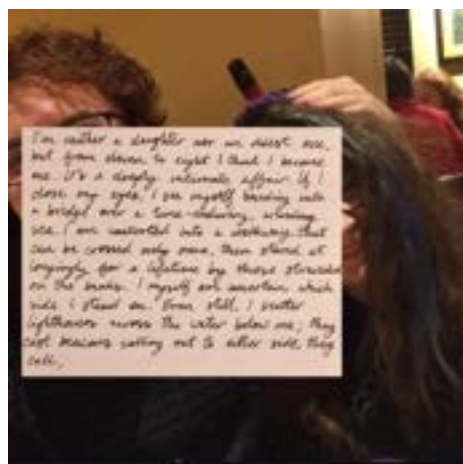 I'm neither a daughter nor an eldest one,
but from eleven to eight I think I became
me. It's a deeply intimate affair. If I
close my eyes, I see myself bending into
a bridge over a time-enduring, winding
sea. I am contorted into a walkway that
can be crossed only once, then stared at
longingly for a lifetime by those stranded
on the banks. I myself am uncertain which
side I stand on. Even still, I scatter
lighthouses across the water below me; they
cast beacons calling out to either side, they
call,